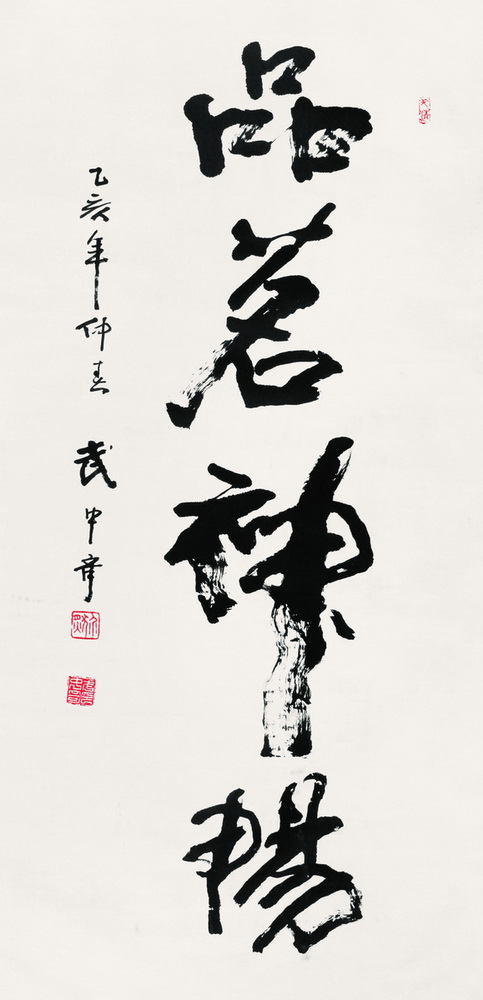 品茗神暢
乙亥年仲春 武中奇